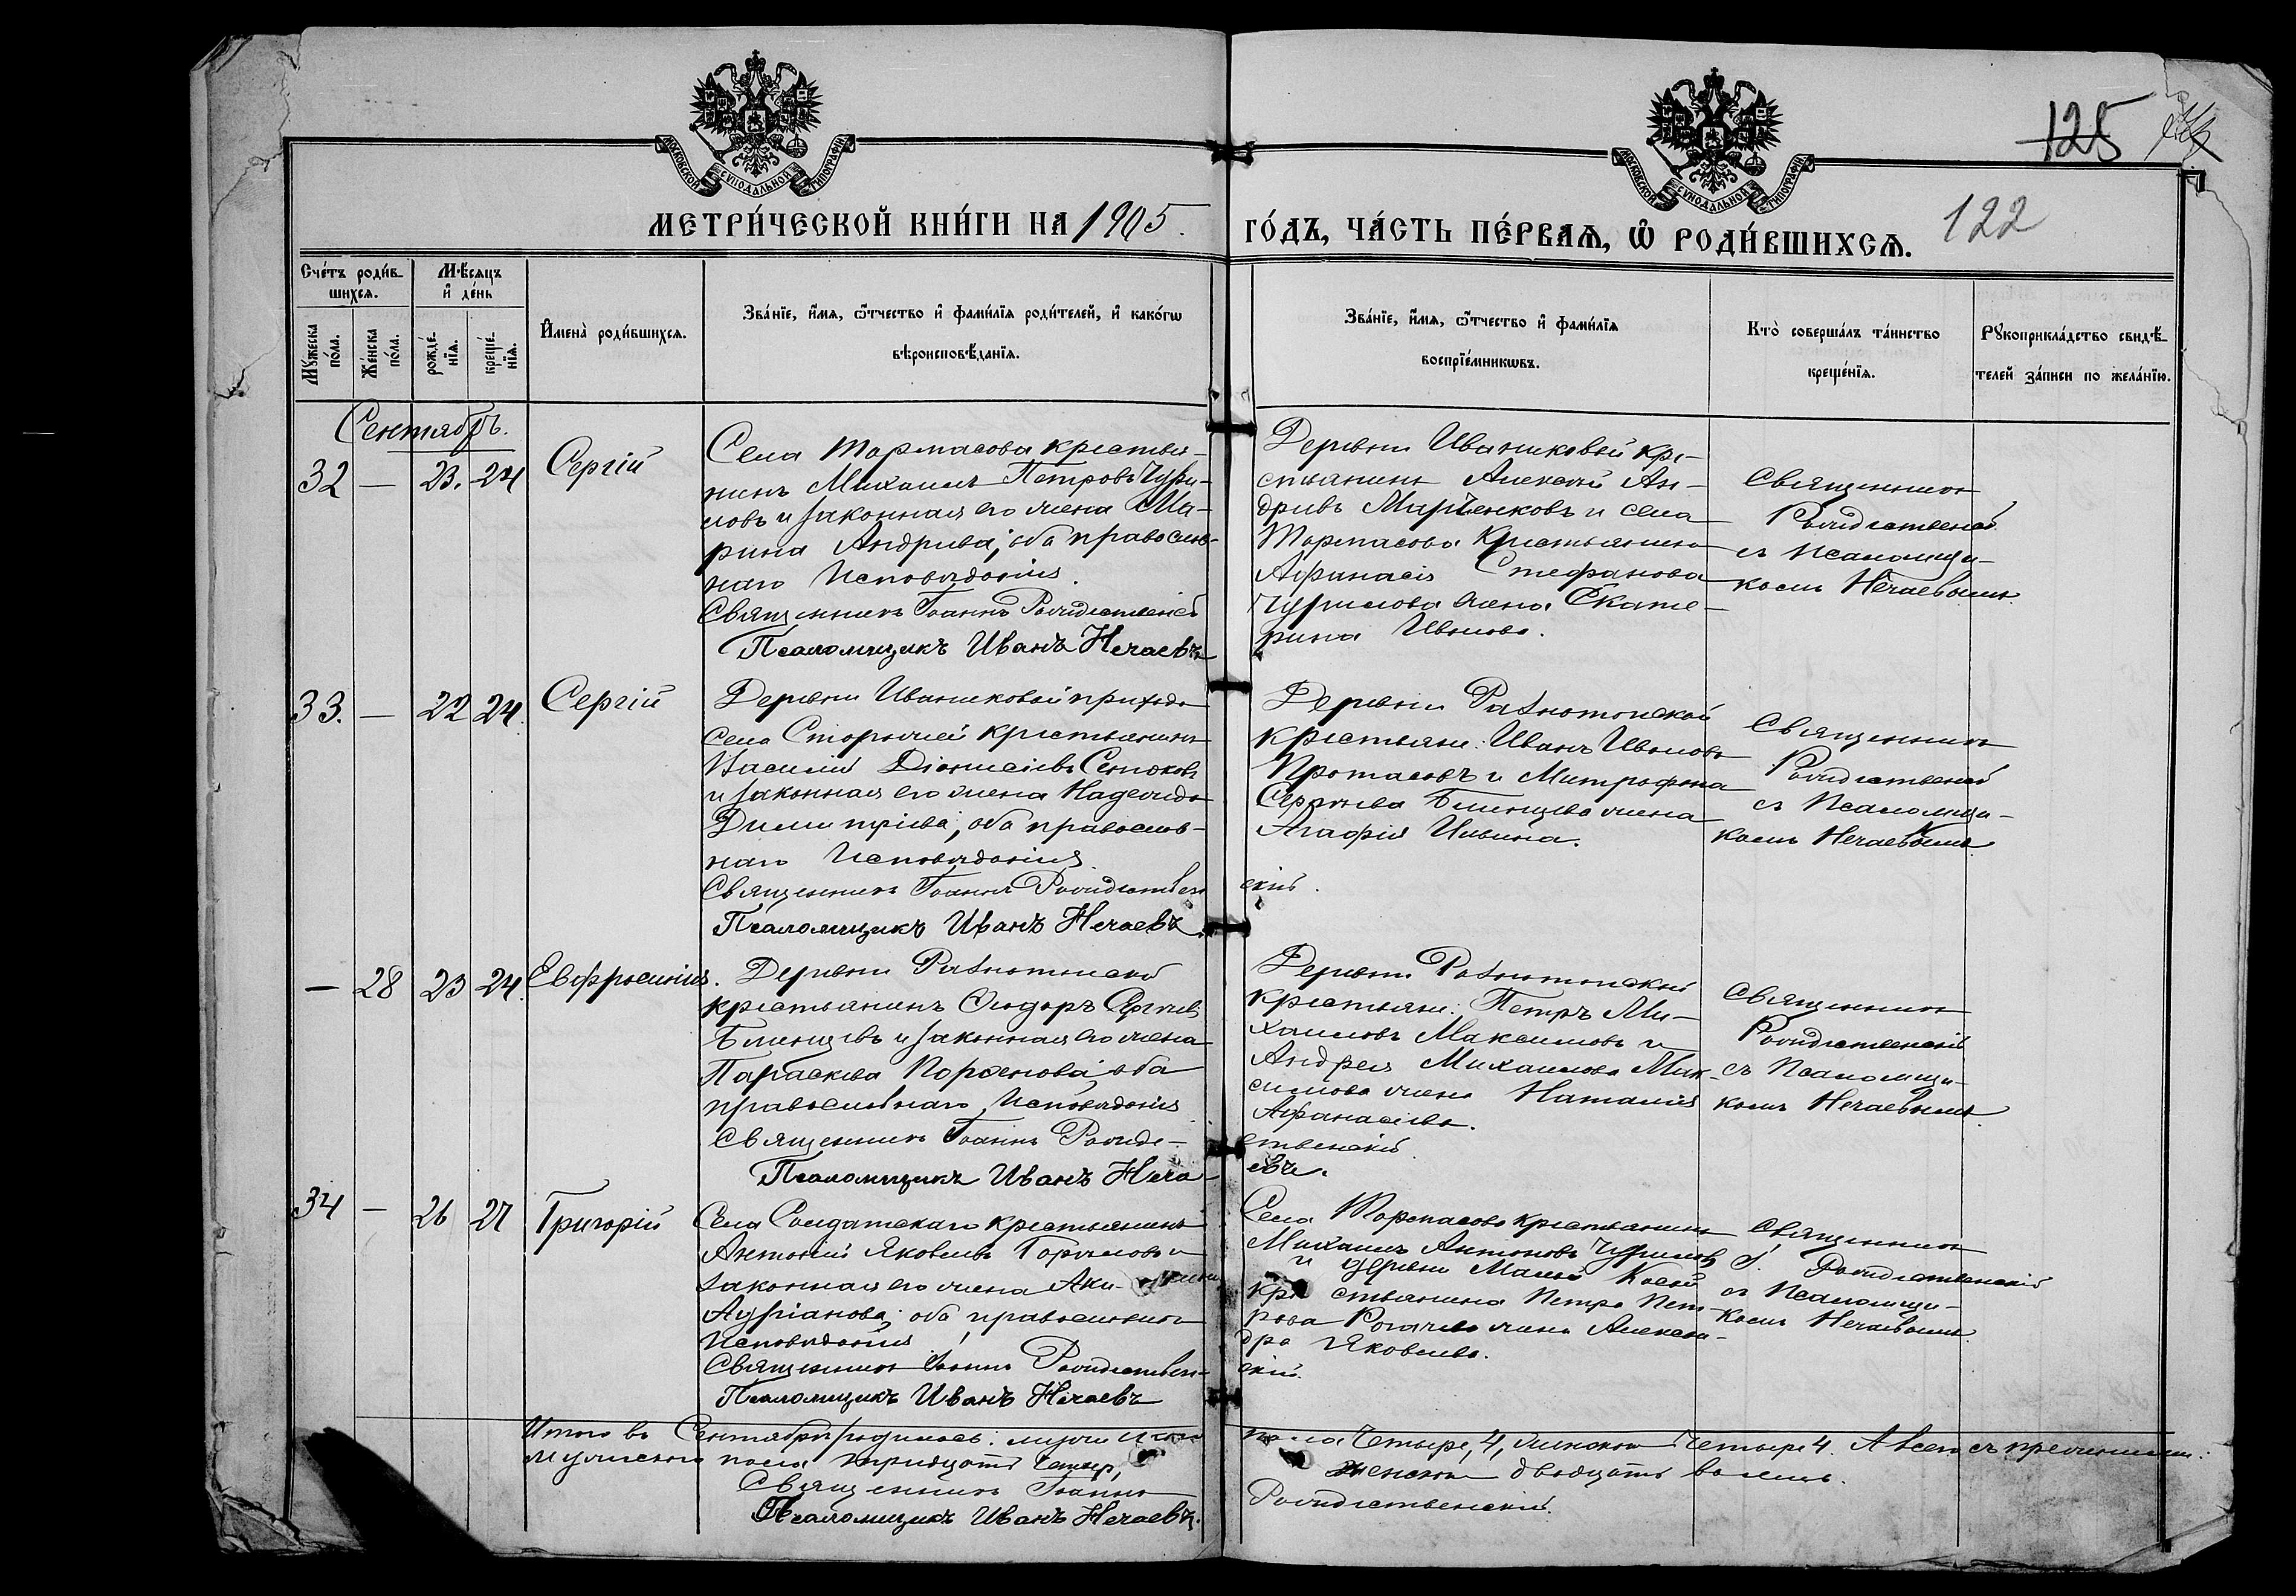 МОСКОВСКОЙ СѴНОДАЛЬНОЙ ТИПОГРАФІИ
МОСКОВСКОЙ СѴНОДАЛЬНОЙ ТИПОГРАФІИ
125
МЕТРИ́ЧЕСКОЙ КНИ́ГИ НА 1905.
ГО́ДЪ, ЧА́СТЬ ПЕ́РВАѦ, Ѽ РОДИ́ВШИХСѦ.
122
Сче́тъ роди́в-
шихсѧ.
Мѣсѧцъ
и҆ де́нь
Мꙋ́жеска
по́ла.
Же́нска
по́ла.
рожде́-
нїѧ.
креще́-
нїѧ.
И҆мена̀ роди́вшихсѧ.
Зва́нїе, и҆́мѧ, ѻ҆́тчество и҆ фами́лїѧ роди́телей, и҆ како́гѡ
вѣроисповѣ́данїѧ.
Зва́нїе, и҆́мѧ, ѻ҆́тчество и҆ фами́лїѧ
воспрїе́мникѡвъ.
Кто̀ соверша́лъ та́инство
креще́нїѧ.
Рꙋкоприкла́дство свидѣ́-
телей за́писи по жела́нїю.
Сентябрь.
32 — 23. 24 Сергій
Села Тормасова крестья-
нинъ Михаилъ Петровъ Чури-
ловъ и законная его жена Ма-
рина Андреева, оба православ-
наго исповѣданія.
Священникъ Іоаннъ Рождественскій
Псаломщикъ Иванъ Нечаевъ
Деревни Иваниковой кре-
стьянинъ Алексѣй Ан-
дреевъ Марченковъ и села
Тормасова крестьянина
Афанасія Стефанова
Чурилова жена Екате-
рина Иванова.
Священникъ
Рождественскій
съ псаломщи-
комъ Нечаевымъ.
33. — 22 24. Сергій
Деревни Иваниковой прихода
села крестьянинъ
Василій Діонисіевъ
и законная его жена Надежда
Димитріева, оба православ-
наго исповѣданія.
Священникъ Іоаннъ Рождествен
скій.
Псаломщикъ Иванъ Нечаевъ.
Деревни
крестьяне: Иванъ Ивановъ
Протасовъ и Митрофана
Сергѣева жена
Агафія
Священникъ
Рождественскій
съ псаломщи-
комъ Нечаевымъ.
— 28 23 24. Евфросинія.
Деревни
крестьянинъ Ѳеодоръ Сергѣевъ
и законная его жена
Параскева оба
православнаго исповѣданія
Священникъ Іоаннъ Рожде-
ственскій
Псаломщикъ Иванъ Нечаевъ.
Деревни
крестьяне: Петръ Ми-
хаиловъ Максимовъ и
Андрея Михаилова Мак-
симова жена Наталія
Афанасіева.
Священникъ
Рождественскій
съ псаломщи-
комъ Нечаевымъ.
34 — 26 27 Григорій
Села Солдатскаго крестьянинъ
Антоній Яковлевъ и
законная его жена
оба православнаго
исповѣданія.
Священникъ Іоаннъ Рождествен-
скій.
Псаломщикъ Иванъ Нечаевъ
Села Тормасова крестьянинъ
Михаилъ Антоновъ Чуриловъ
и деревни Малой
крестьянина Петра Пет-
рова жена Алексан-
дра Яковлева.
Священникъ
І. Рождественскій
съ псаломщи-
комъ Нечаевымъ.
Итого въ Сентябрѣ родилось: мужескаго пола четыре, 4, женскаго четыре 4. А всего съ прежними:
мужескаго пола тридцать четыре, женскаго двадцать восемь.
Священникъ Іоаннъ Рождественскій.
Псаломщикъ Иванъ Нечаевъ.